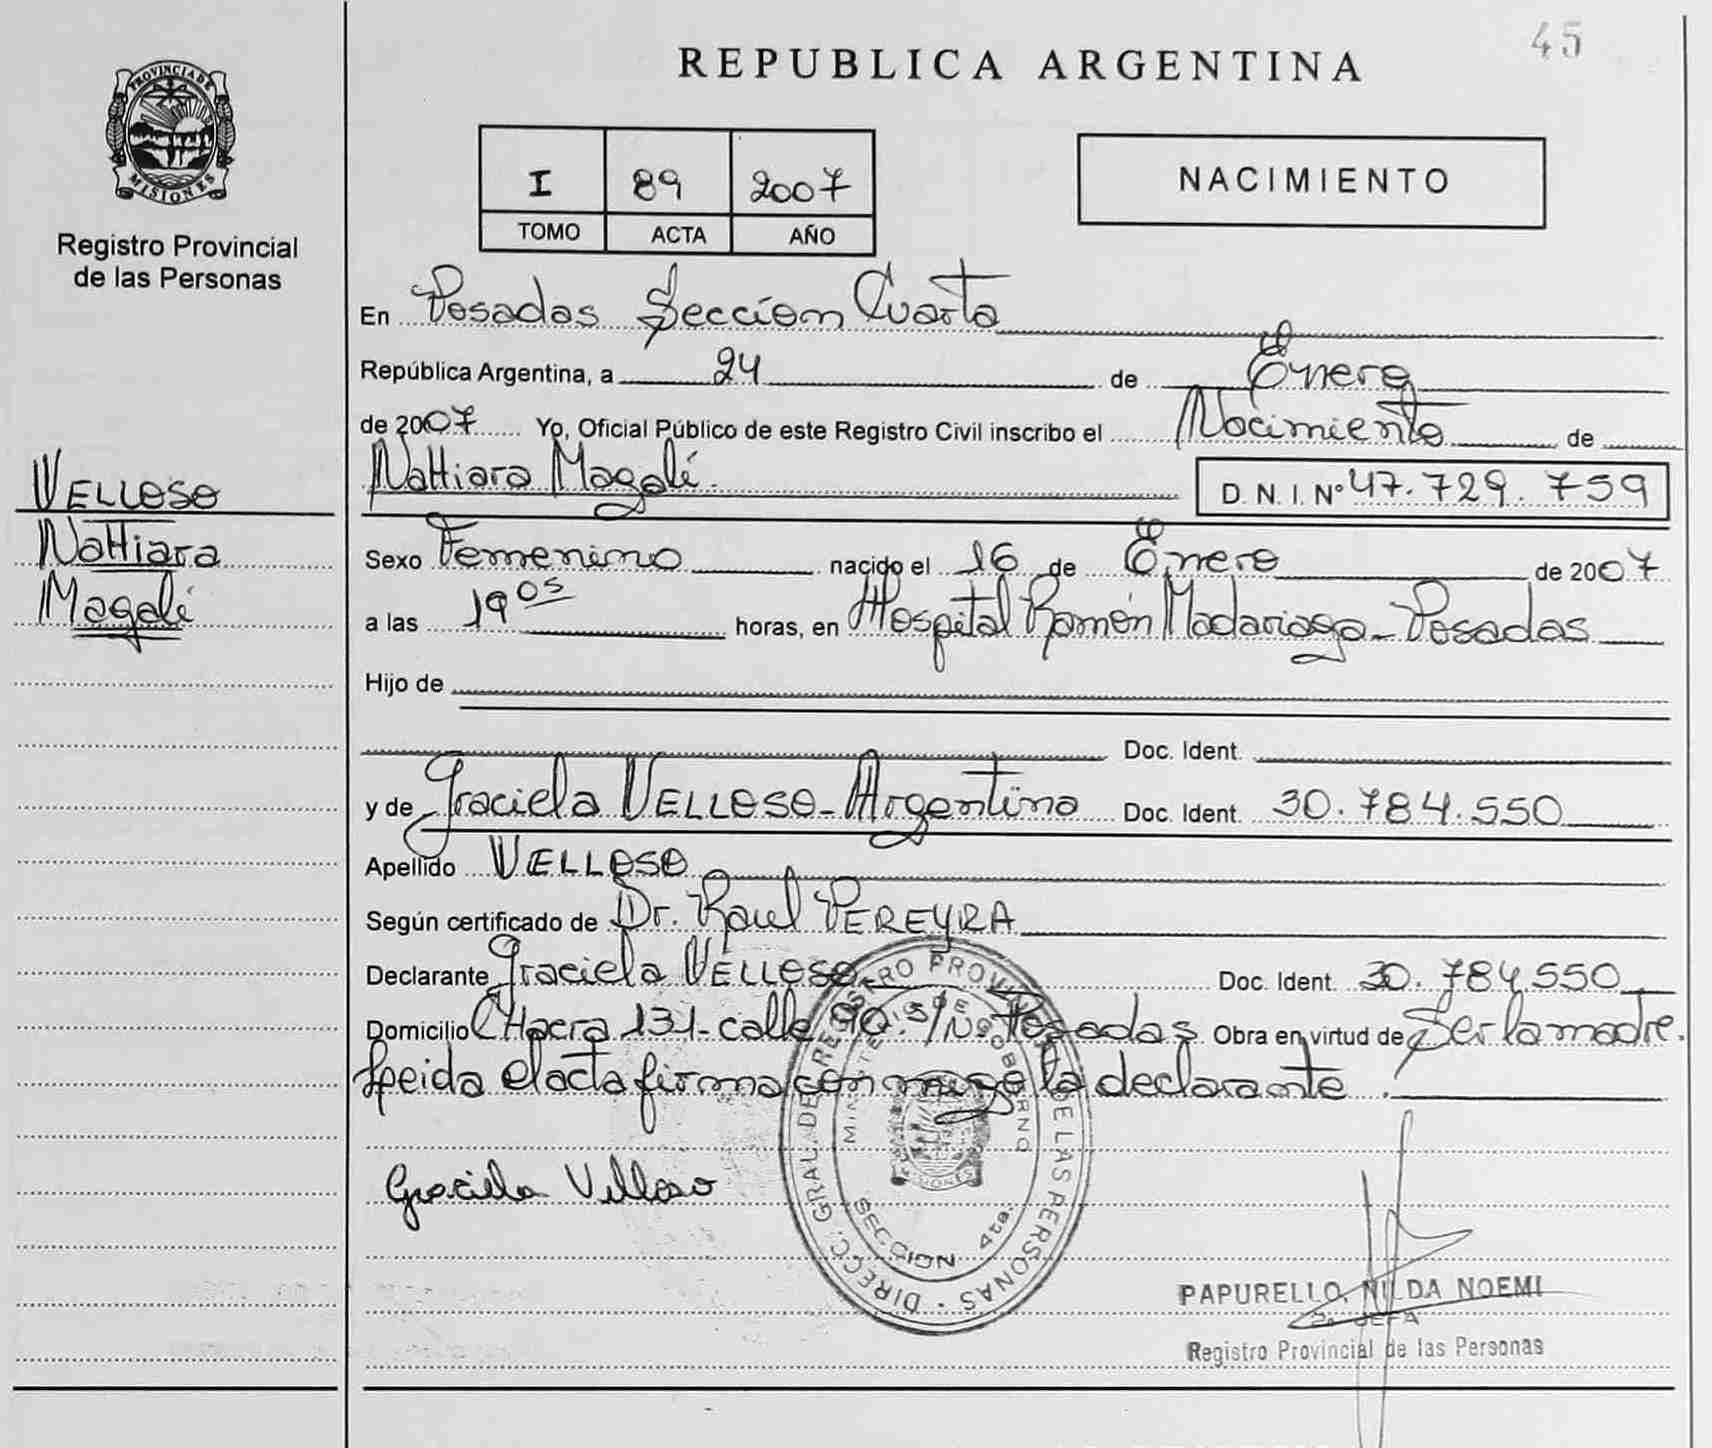 45
REPUBLICA ARGENTINA
PROVINCIA DE
MISIONES
Registro Provincial
de las Personas
I 89 2007
TOMO ACTA AÑO
NACIMIENTO
En Posadas Sección Cuarta
República Argentina, a 24 de Enero
de 2007 Yo, Oficial Público de este Registro Civil inscribo el Nacimiento de
Nattiara Magalí.
D. N. I. Nº 47.729.759
VELLOSO
Nattiara
Magalí
Sexo Femenino nacido el 16 de Enero de 2007
a las 19 05 horas, en Hospital Ramón Madariaga - Posadas
Hijo de
Doc. Ident.
y de Graciela VELLOSO - Argentina Doc. Ident. 30.784.550
Apellido VELLOSO
Según certificado de Dr. Raul PEREYRA
Declarante Graciela VELLOSO Doc. Ident. 30.784.550
Domicilio CHacra 131 - calle 90. S/Nº Posadas Obra en virtud de Ser la madre.
Leida el acta firma con migo la declarante.
Graciela Velloso
DIRECC. GRAL. DE REGISTRO PROVINCIAL DE LAS PERSONAS
MINISTERIO DE GOBIERNO
MISIONES
SECCION 4ta.
PAPURELLO, NILDA NOEMI
2a JEFA
Registro Provincial de las Personas